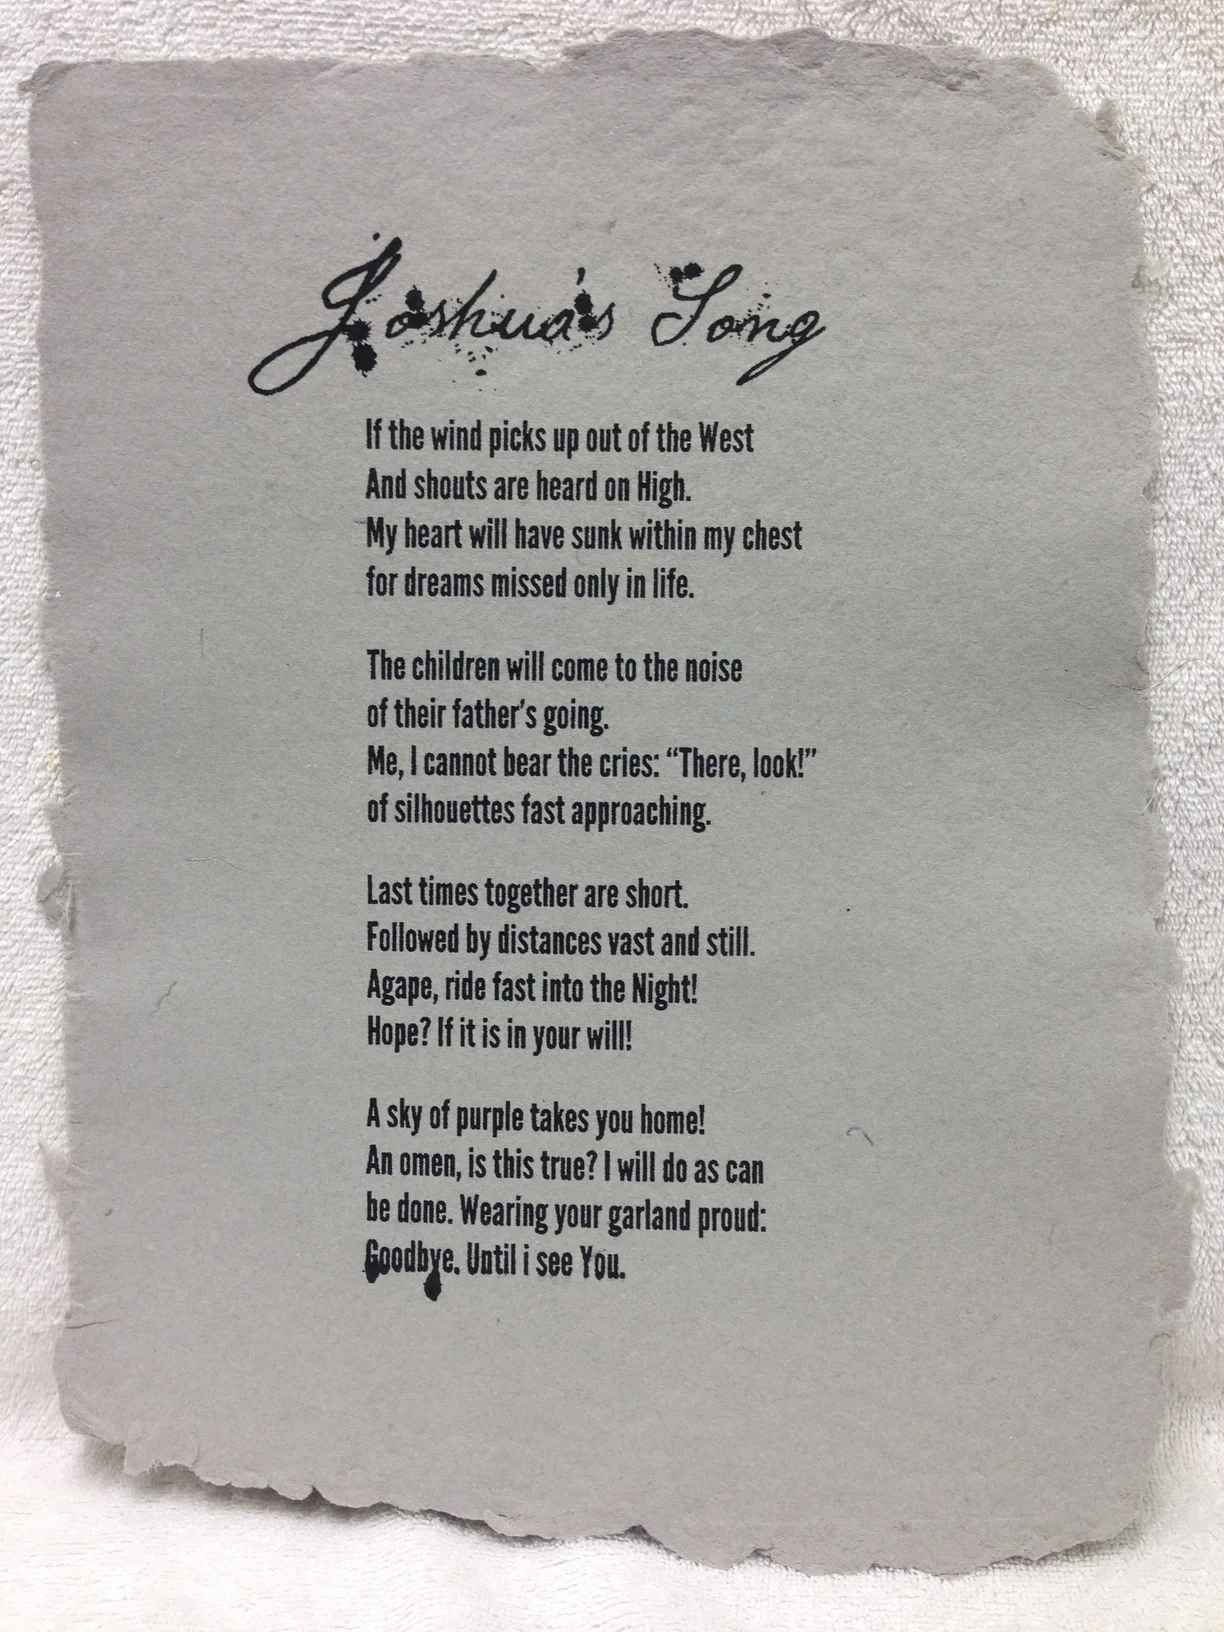 Joshua's Song
If the wind picks up out of the West
And shouts are heard on High.
My heart will have sunk within my chest
for dreams missed only in life.
The children will come to the noise
of their father's going.
Me, I cannot bear the cries: “There, look!”
of silhouettes fast approaching.
Last times together are short.
Followed by distances vast and still.
Agape, ride fast into the Night!
Hope? If it is in your will!
A sky of purple takes you home!
An omen, is this true? I will do as can
be done. Wearing your garland proud:
Goodbye. Until i see You.